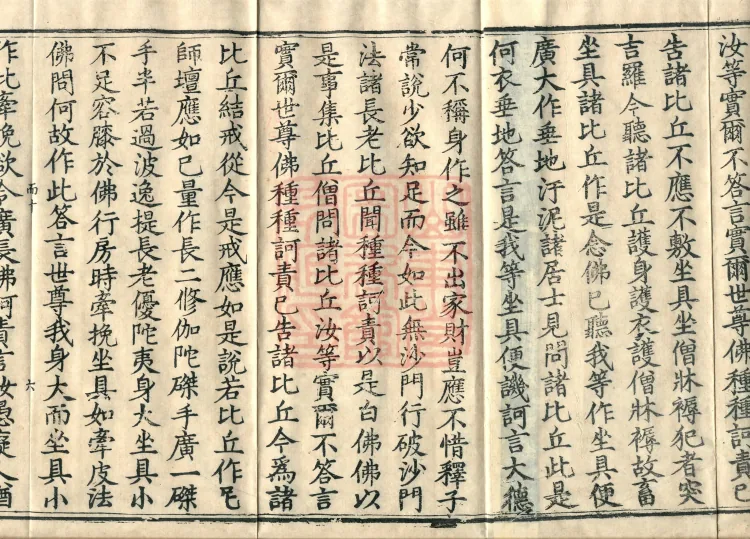 汝等實爾不答言實爾世尊佛種種訶責已
告諸比丘不應不敷坐具坐僧牀褥犯者突
吉羅今聽諸比丘護身護衣護僧牀褥故畜
坐具諸比丘作是念佛已聽我等作坐具便
廣大作垂地汙泥諸居士見問諸比丘此是
何衣垂地答言是我等坐具便譏訶言大德
何不稱身作之雖不出家財豈應不惜釋子
常說少欲知足而今如此無沙門行破沙門
法諸長老比丘聞種種訶責以是白佛佛以
是事集比丘僧問諸比丘汝等實爾不答言
實爾世尊佛種種訶責已告諸比丘今爲諸
比丘結戒從今是戒應如是說若比丘作尼
師壇應如已量作長二修伽陀磔手廣一磔
手半若過波逸提長老優陀夷身大坐具小
不足容膝於佛行房時牽挽坐具如牽皮法
佛問何故作此答言世尊我身大而坐具小
而十 六
作比牽挽欲令廣長佛訶責言汝愚癡人猶